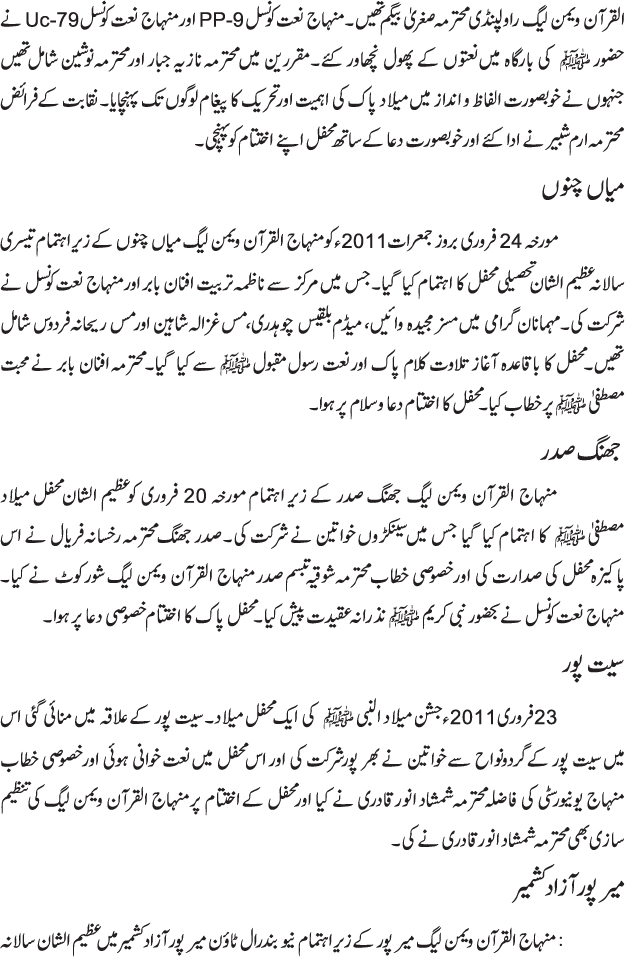 القرآن ویمن لیگ راولپنڈی محترمہ صغریٰ بیگم تھیں۔ منہاج نعت کونسل PP-9 اور منہاج نعت کونسل Uc-79 نے
حضور ﷺ کی بارگاہ میں نعتوں کے پھول نچھاور کئے۔ مقررین میں محترمہ نازیہ جبار اور محترمہ نوشین شامل تھیں
جنہوں نے خوبصورت الفاظ و انداز میں میلاد پاک کی اہمیت اور تحریک کا پیغام لوگوں تک پہنچایا۔ نقابت کے فرائض
محترمہ ارم شبیر نے ادا کئے اور خوبصورت دعا کے ساتھ محفل اپنے اختتام کو پہنچی۔
میاں چنوں
مورخہ 24 فروری بروز جمعرات 2011ء کو منہاج القرآن ویمن لیگ میاں چنوں کے زیر اہتمام تیسری
سالانہ عظیم الشان تحصیلی محفل کا اہتمام کیا گیا۔ جس میں مرکز سے ناظمہ تربیت افنان بابر اور منہاج نعت کونسل نے
شرکت کی۔ مہمانان گرامی میں مسز مجیدہ وائیں، میڈم بلقیس چوہدری، مس غزالہ شاہین اور مس ریحانہ فردوس شامل
تھیں۔ محفل کا باقاعدہ آغاز تلاوت کلام پاک اور نعت رسول مقبول ﷺ سے کیا گیا۔ محترمہ افنان بابر نے محبت
مصطفیٰ ﷺ پر خطاب کیا۔ محفل کا اختتام دعا وسلام پر ہوا۔
جھنگ صدر
منہاج القرآن ویمن لیگ جھنگ صدر کے زیر اہتمام مورخہ 20 فروری کو عظیم الشان محفل میلاد
مصطفیٰ ﷺ کا اہتمام کیا گیا جس میں سینکڑوں خواتین نے شرکت کی۔ صدر جھنگ محترمہ رخسانہ فریال نے اس
پاکیزہ محفل کی صدارت کی اور خصوصی خطاب محترمہ شوقیہ تبسم صدر منہاج القرآن ویمن لیگ شورکوٹ نے کیا۔
منہاج نعت کونسل نے بحضور نبی کریم ﷺ نذرانہ عقیدت پیش کیا۔ محفل پاک کا اختتام خصوصی دعا پر ہوا۔
سیت پور
23 فروری 2011ء جشن میلاد النبی ﷺ کی ایک محفل میلاد۔ سیت پور کے علاقہ میں منائی گئی اس
میں سیت پور کے گردونواح سے خواتین نے بھر پور شرکت کی اور اس محفل میں نعت خوانی ہوئی اور خصوصی خطاب
منہاج یونیورسٹی کی فاضلہ محترمہ شمشاد انور قادری نے کیا اور محفل کے اختتام پر منہاج القرآن ویمن لیگ کی تنظیم
سازی بھی محترمہ شمشاد انور قادری نے کی۔
میر پور آزاد کشمیر
: منہاج القرآن ویمن لیگ میر پور کے زیر اہتمام نیو بندرال ٹاؤن میر پور آزاد کشمیر میں عظیم الشان سالانہ